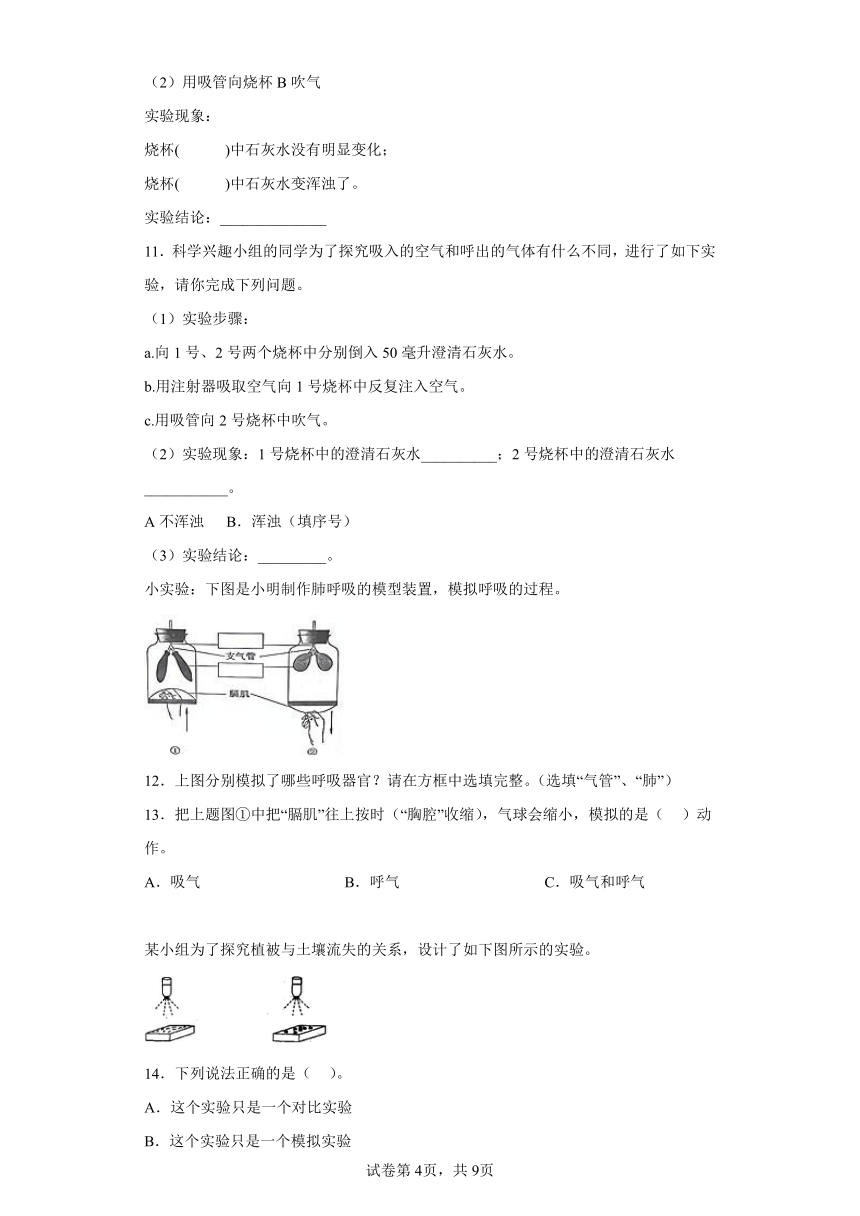 （2）用吸管向烧杯 B 吹气
实验现象：
烧杯(　　　)中石灰水没有明显变化；
烧杯(　　　)中石灰水变浑浊了。
实验结论：______________
11．科学兴趣小组的同学为了探究吸入的空气和呼出的气体有什么不同，进行了如下实
验，请你完成下列问题。
（1）实验步骤：
a.向 1 号、2 号两个烧杯中分别倒入 50 毫升澄清石灰水。
b.用注射器吸取空气向 1 号烧杯中反复注入空气。
c.用吸管向 2 号烧杯中吹气。
（2）实验现象：1 号烧杯中的澄清石灰水__________；2 号烧杯中的澄清石灰水
___________。
A 不浑浊　B．浑浊（填序号）
（3）实验结论：_________。
小实验：下图是小明制作肺呼吸的模型装置，模拟呼吸的过程。
支气管
膈肌
① ②
12．上图分别模拟了哪些呼吸器官？请在方框中选填完整。（选填“气管”、“肺”）
13．把上题图①中把“膈肌”往上按时（“胸腔”收缩），气球会缩小，模拟的是（　）动
作。
A．吸气　B．呼气　C．吸气和呼气
某小组为了探究植被与土壤流失的关系，设计了如下图所示的实验。
14．下列说法正确的是（　）。
A．这个实验只是一个对比实验
B．这个实验只是一个模拟实验
试卷第 4页，共 9页